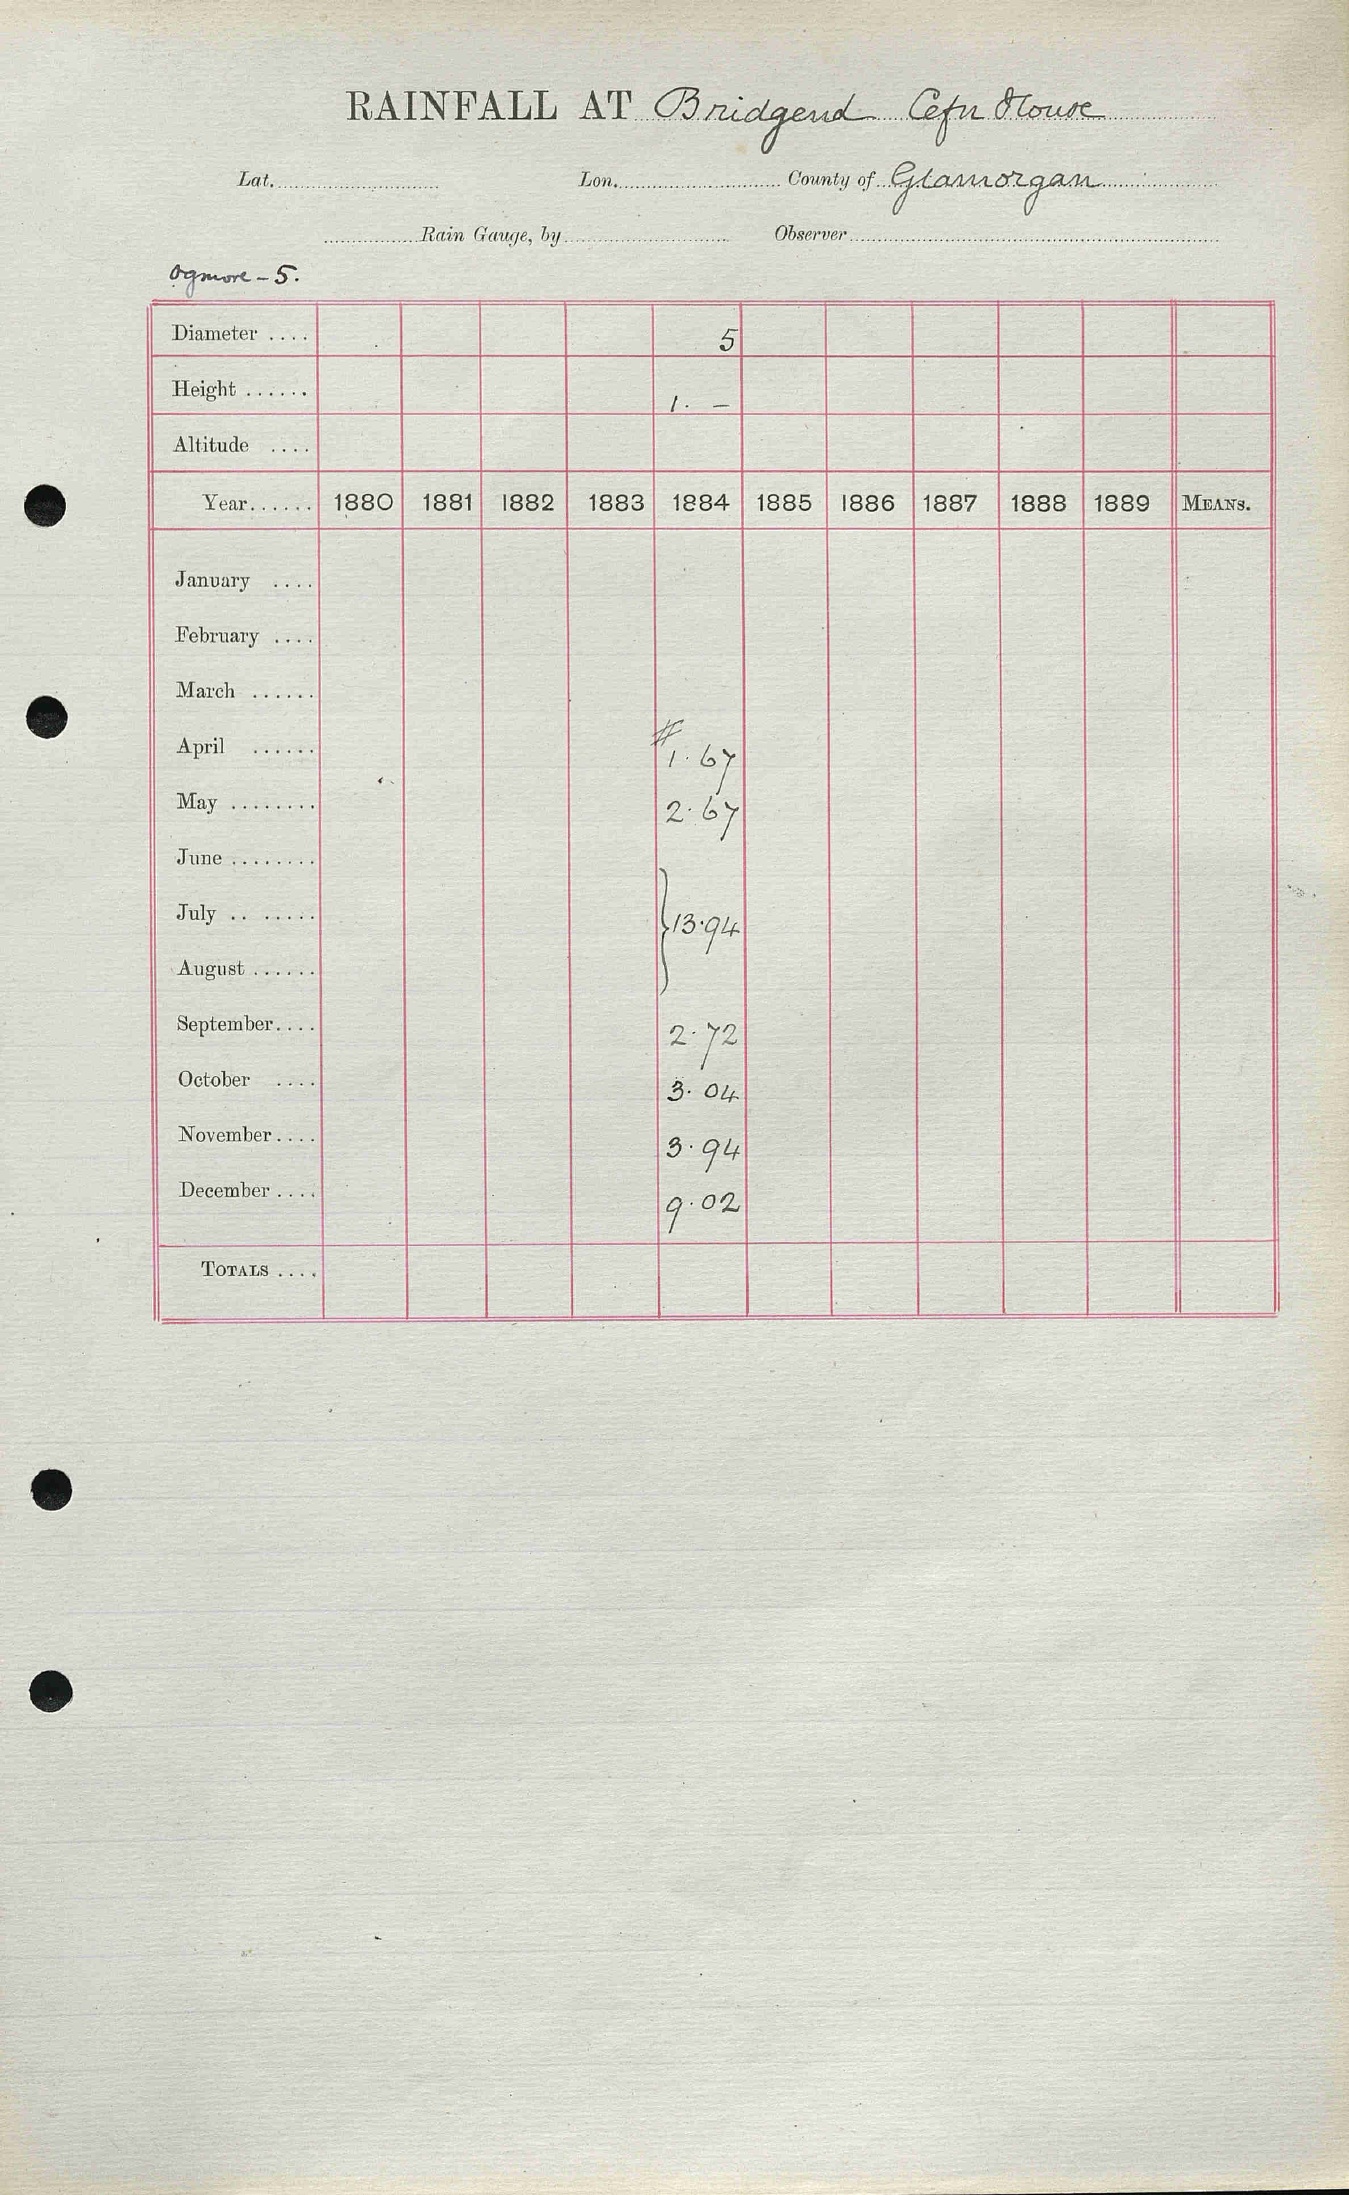 RAINFALL AT Bridgend Cefn House
Lat. Lon. County of Glamorgan
Rain Gauge, by Observer
Ogmore - 5.
Diameter .... 5
Height ...... 1. –
Altitude ....
Year...... 1880 1881 1882 1883 1884 1885 1886 1887 1888 1889 MEANS.
January ....
February ....
March ......
April ...... # 1.67
May ........ 2.67
June ........
July .. ..... } 13.94
August ......
September.... 2.72
October .... 3.04
November.... 3.94
December.... 9.02
TOTALS ....